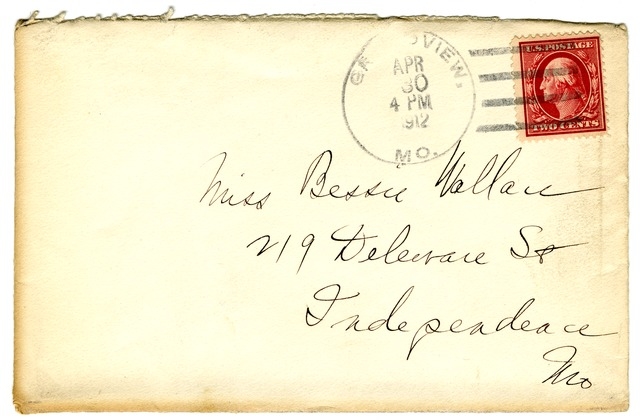 GRANDVIEW,
APR
30
4 PM
1912
MO.
U.S. POSTAGE
TWO CENTS
Miss Bessie Wallace
219 Deleware St
Independence
Mo